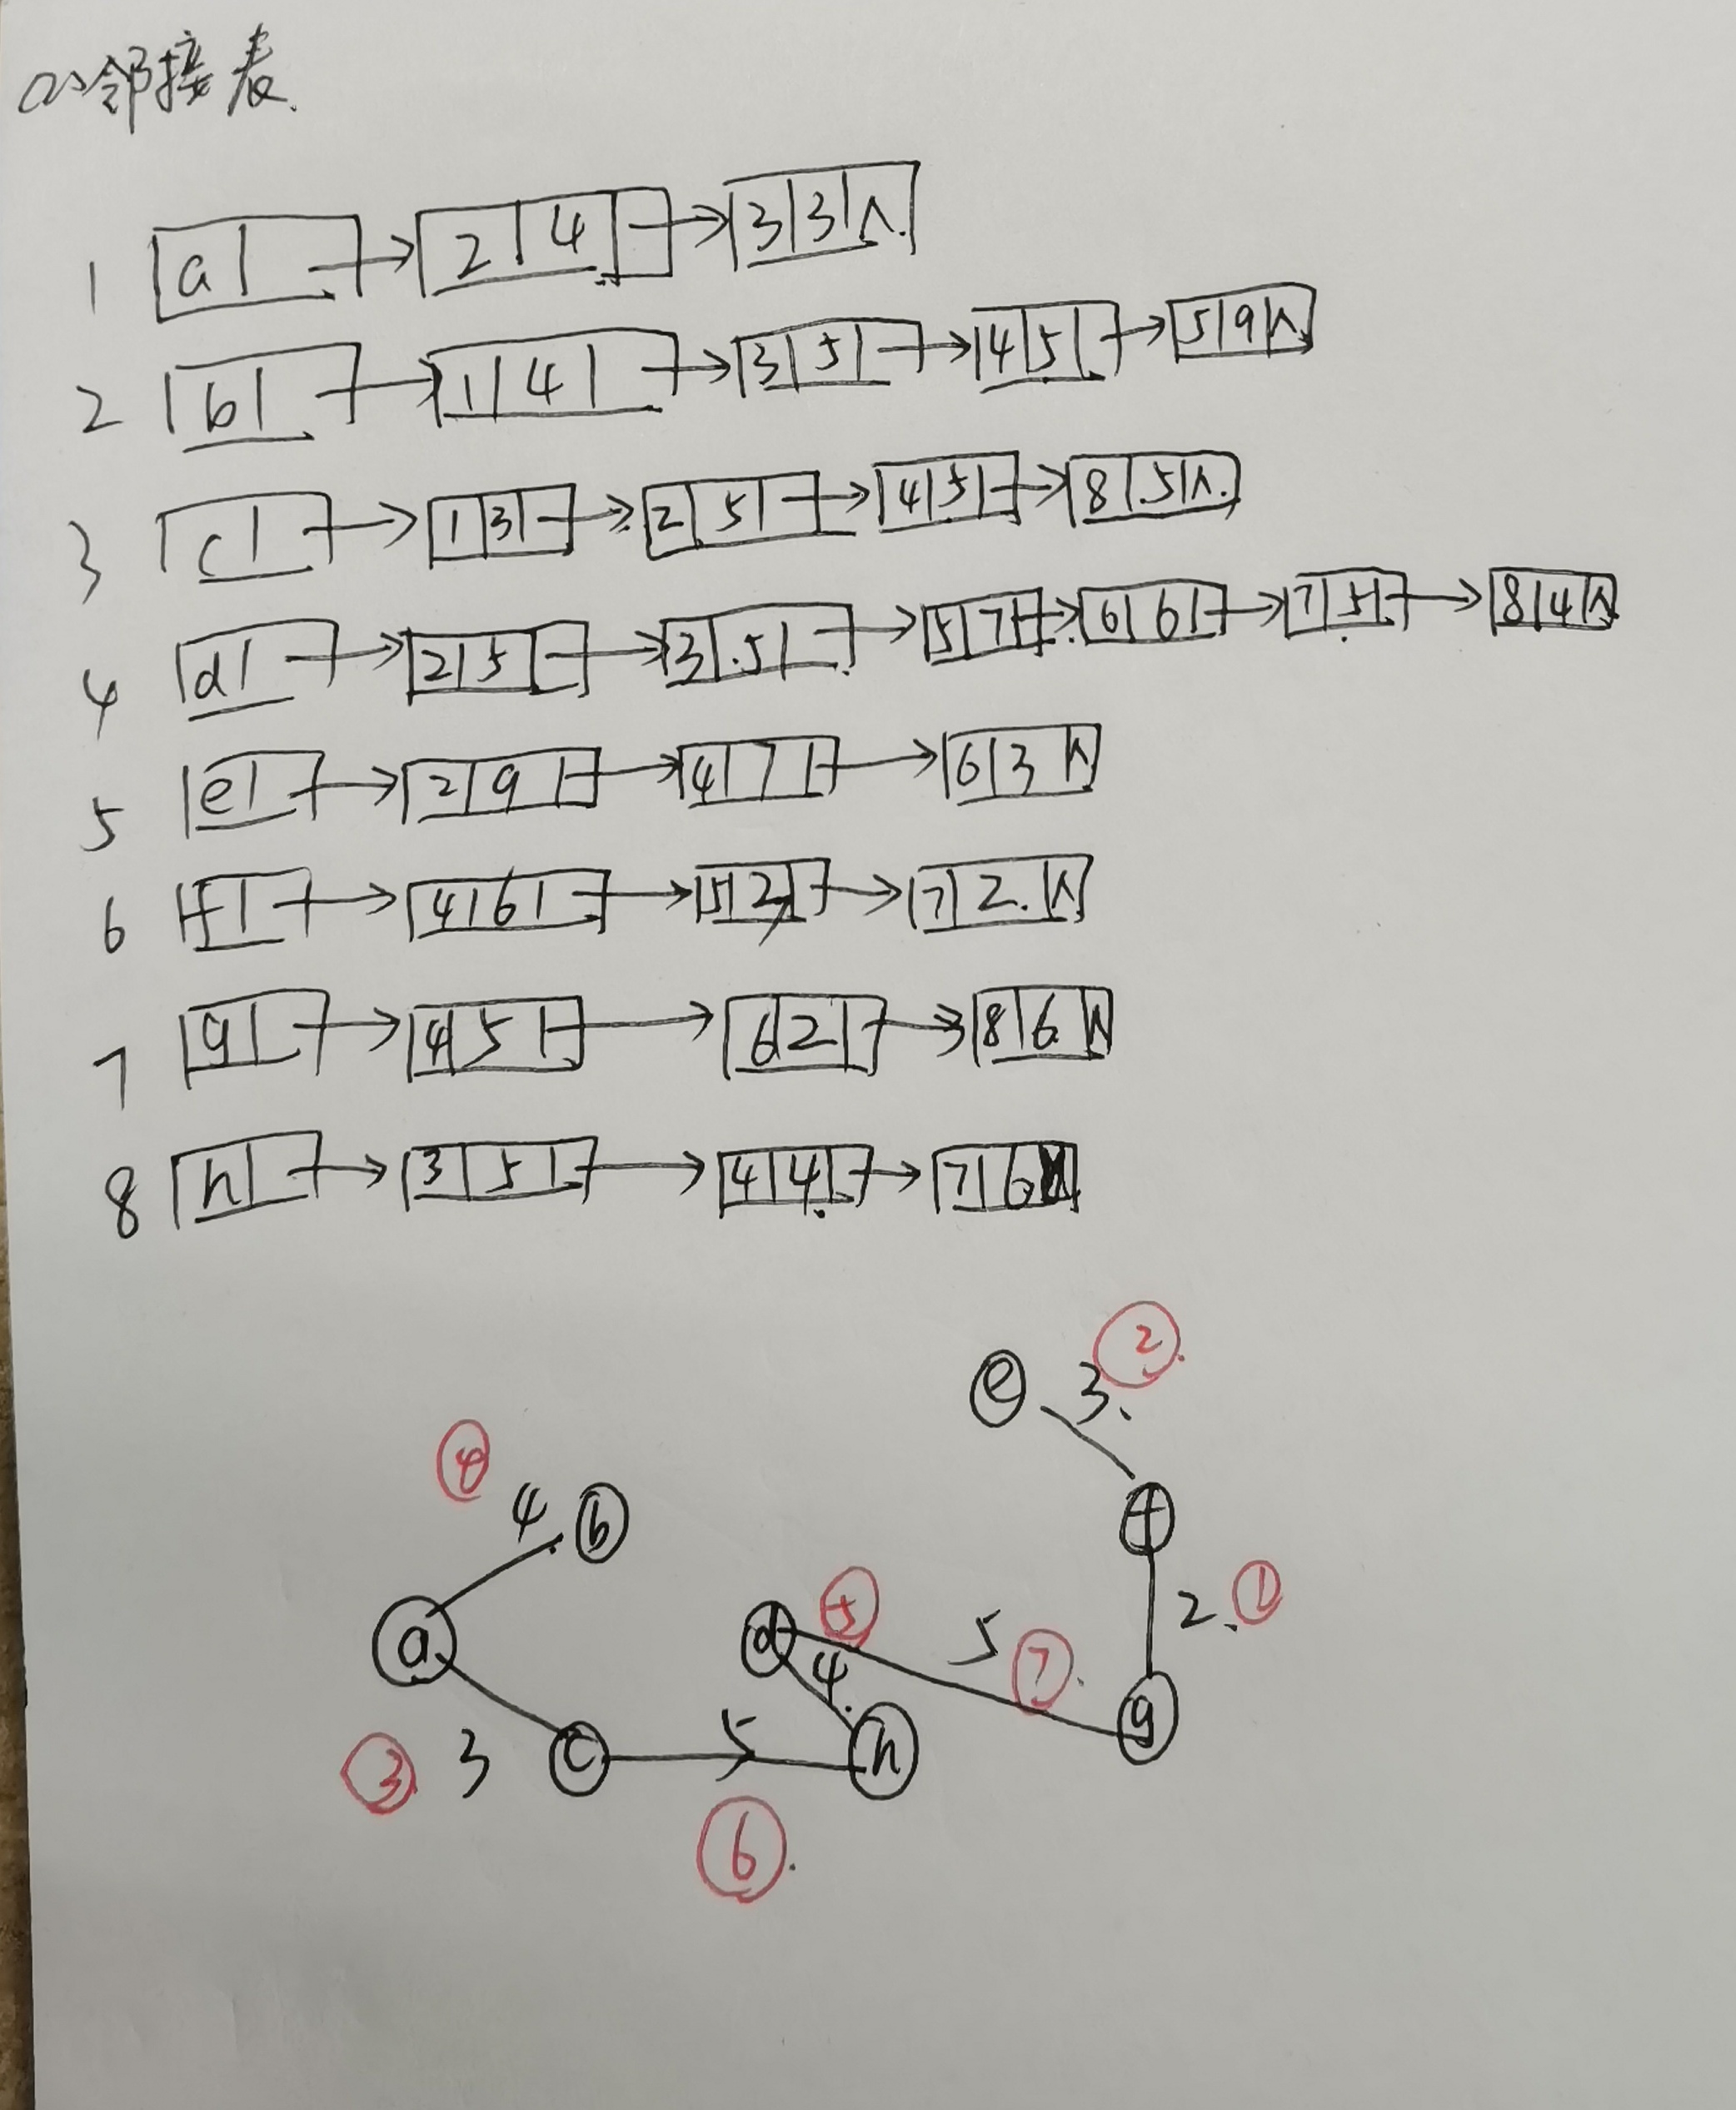 (2)邻接表.
1 a 2 4 3 3 ∧
2 b 1 4 3 5 4 5 5 9 ∧
3 c 1 3 2 5 4 5 8 5 ∧
4 d 2 5 3 5 5 7 6 6 7 5 8 4 ∧
5 e 2 9 4 7 6 3 ∧
6 f 4 6 5 7 2 ∧
7 g 4 5 6 2 8 6 ∧
8 h 3 5 4 4 7 6
②
e 3
④
4 b f
a d ⑤ 4 5 ⑦ 2 ①
③ 3 c 5 h g
⑥